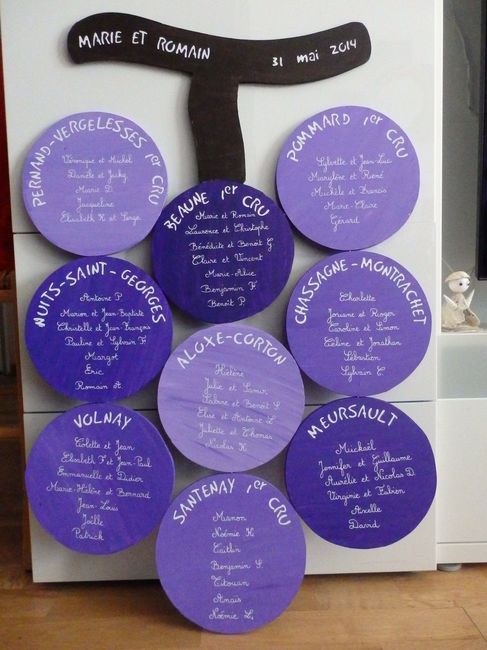 MARIE ET ROMAIN
31 mai 2014
PERNAND-VERGELESSES 1er CRU
Véronique et Michel
Danièle et Jacky
Marie D.
Jacqueline
Elisabeth H et Serge
POMMARD 1er CRU
Sylvette et Jean-Luc
Marylène et René
Michèle et Francis
Marie-Claire
Gérard
BEAUNE 1er CRU
Marie et Romain
Laurence et Christophe
Bénédicte et Benoit G
Claire et Vincent
Marie-Alice
Benjamin F
Benoit P.
NUITS-SAINT-GEORGES
Antoine P.
Marion et Jean-Baptiste
Christelle et Jean-François
Pauline et Sylvain F.
Margot
Eric
Romain A.
CHASSAGNE-MONTRACHET
Charlotte
Josiane et Roger
Caroline et Simon
Céline et Jonathan
Sébastien
Sylvain C.
ALOXE-CORTON
Hélène
Julie et Samir
et Benoit S
Elise et Antoine L
Juliette et Thomas
Nicolas K
VOLNAY
Colette et Jean
Elisabeth F et Jean-Paul
Emmanuelle et Didier
Marie-Hélène et Bernard
Jean-Louis
Joëlle
Patrick
MEURSAULT
Mickaël
Jennifer et Guillaume
Aurélie et Nicolas D.
Virginie et Fabien
Axelle
David
SANTENAY 1er CRU
Manon
Noémie H.
Caitlin
Benjamin S.
Titouan
Anaïs
Noémie L.